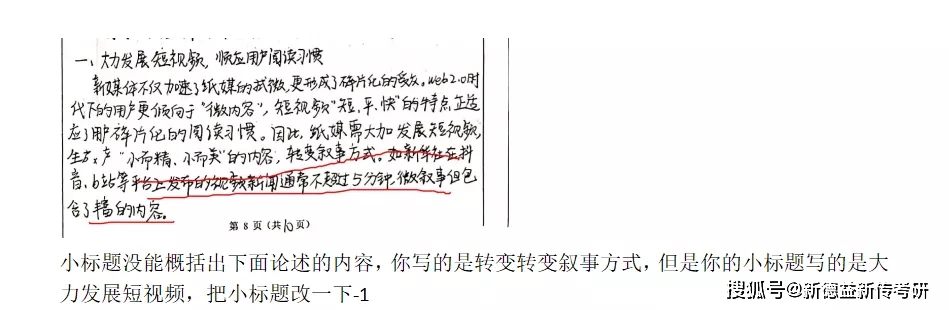 一、大力发展短视频，顺应用户阅读习惯
新媒体不仅加速了纸媒的式微，更形成了碎片化的受众。web2.0时
代下的用户更倾向于“微内容”，短视频“短、平、快”的特点，正适
应了用户碎片化的阅读习惯。因此，纸媒需大加发展短视频，
生产“小而精、小而美”的内容，转变叙事方式。如新华社在抖
音、b站等平台上发布的视频新闻通常不超过5分钟，微叙事但包
含了丰富的内容。
第 8 页（共10页）
小标题没能概括出下面论述的内容，你写的是转变转变叙事方式，但是你的小标题写的是大
力发展短视频，把小标题改一下-1
搜狐号@新德益新传考研